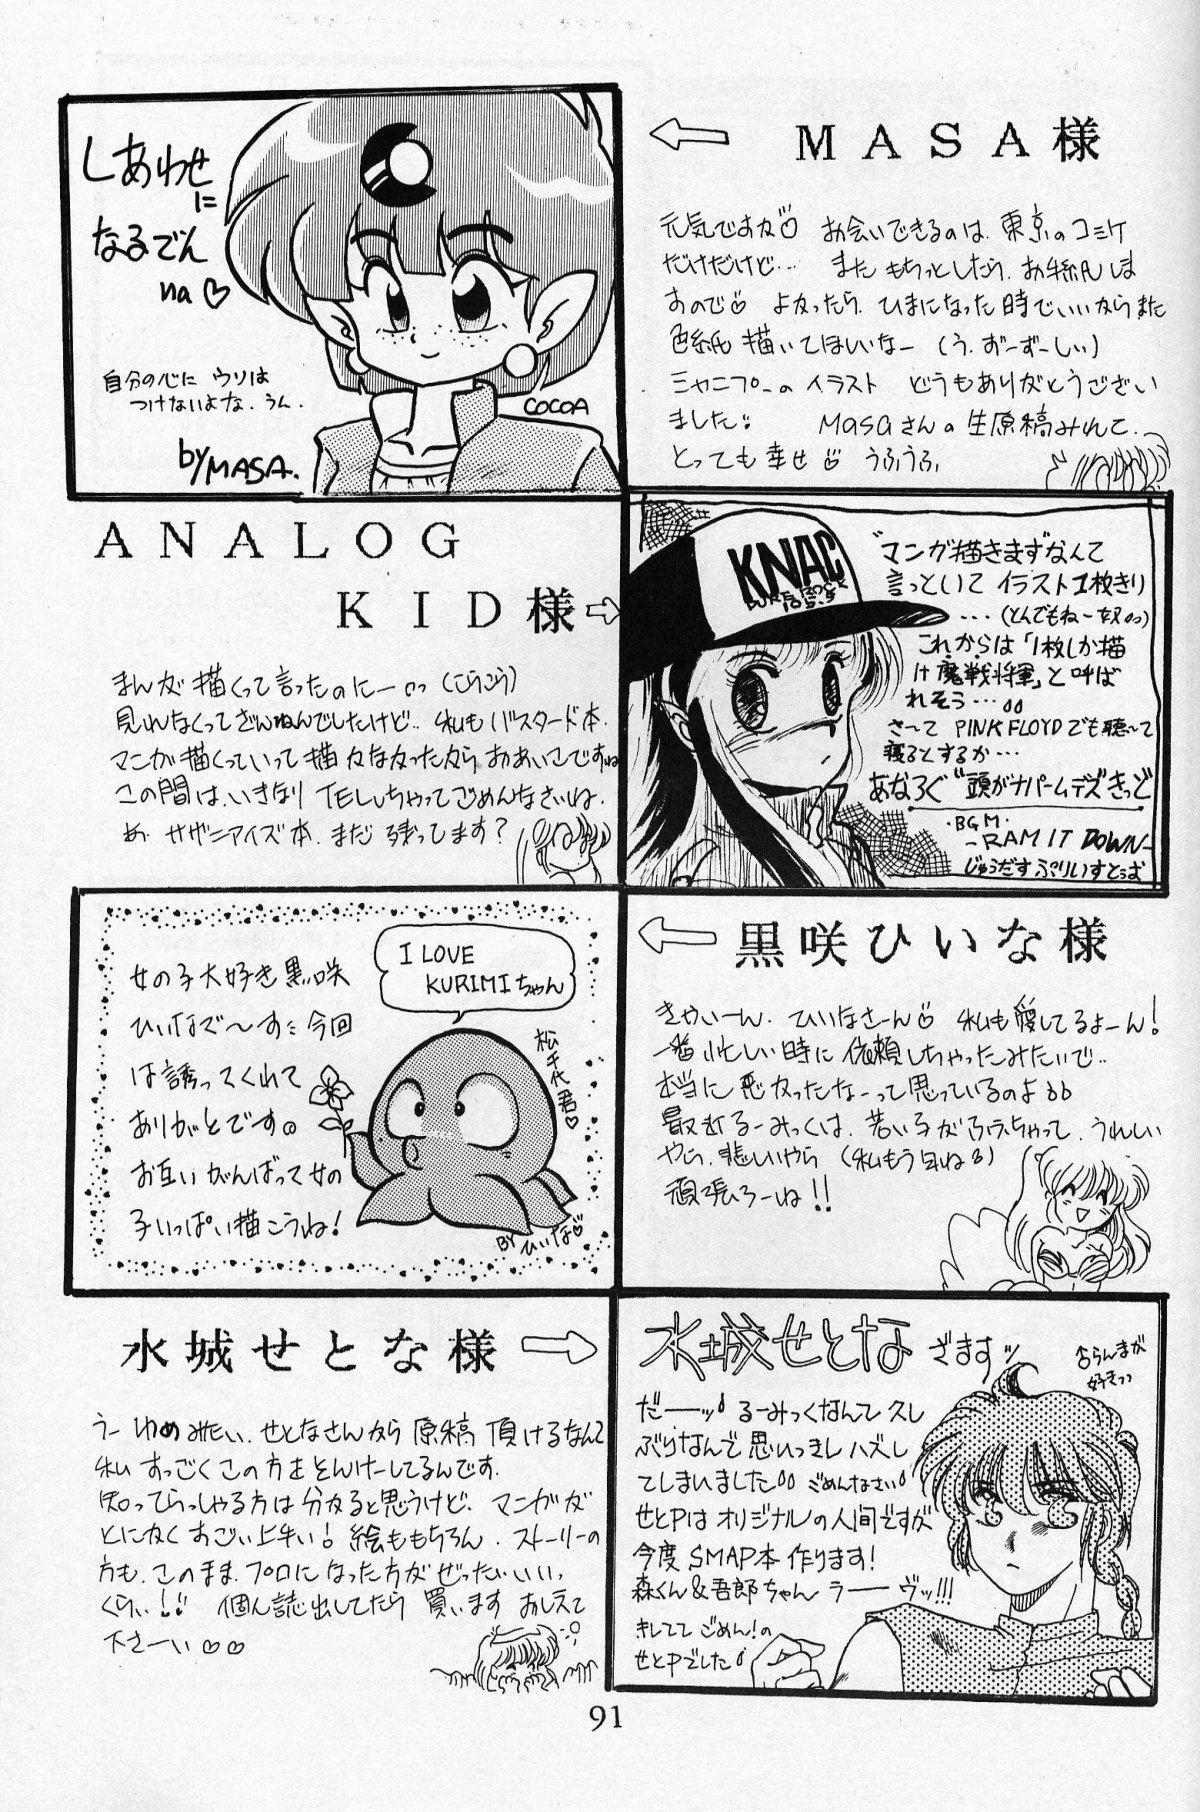 しあわせに
なるでん
na♡
自分の心に ウソは
つけないよな、うん、
by MASA.
COCOA
← MASA様
元気ですか♡ お会いできるのは、東京のコミケ
だけだけど… また もちっとしたら、お手紙しま
すので♡ よかったら、ひまになった時でいいから また
色紙 描いてほしいなー (う、ずーずーしい)
ミャニプーのイラスト どうもありがとうござい
ました MASAさんの生原稿みれて、
とっても幸せ♡ うふうふ
ANALOG
KID様⇨
まんが 描くって言ったのにー (こらこら)
見れなくってざんねんでしたけど、私もバスタード本、
マンガ描くっていって描かなかったからおあいこですね
この間は、いきなり TELしちゃってごめんなさいね、
あ、サザンアイズ本、まだ 残ってします?
KNAC
PURE ROCK
105.5
"マンガ描きますなんて
言っといて イラスト1枚きり
…(とんでもねー奴)
これからは「1枚しか描
け魔戦将軍」と呼ば
れそう…
さ〜て PINK FLOYDでも聴〜て
寝るとするか…
あなろぐ"頭がナパームデズきっど
・BGM・
-RAM IT DOWN-
じゅうだすぷりいすとぅば
女の子大好き黒咲
ひいなで〜す 今回
は誘ってくれて
ありがとです。
お互いがんばって女の
子いっぱい描こうね!
I LOVE
KURIMIちゃん
松千代君♡
BY ひいな♡
← 黒咲ひいな様
きゃいーん、ひいなさーん♡ 私も愛してるよーん!
一番忙しい時に依頼しちゃったみたいで、
本当に悪かったなーって思っているのよ
最近るーみっくは、若い子がふえちゃって、うれしい
やら、悲しいやら (私もう年ね)
頑張ろーね!!
水城せとな様 ⇨
うー ゆめみたい、せとなさんから 原稿 頂けるなんて
私 すっごくこの方をそんけーしてるんです、
知ってらっしゃる方は分かると思うけど、マンガが
とにかくすごい上手い! 絵ももちろん、ストーリーの
方も、このまま、プロになった方がぜったいいい、
くらい! 個人誌出してたら 買います おしえて
下さーい♡♡
水城せとな ざますッ
らんまが
好きっっ
だーーッ るーみっくなんて久し
ぶりなんで思いっきしハズし
てしまいました ごめんなさい
せとPはオリジナルの人間ですが
今度 SMAP本 作ります!
森くん&吾郎ちゃん ラーーヴッ!!!
ごめん!の
せとPでした
91